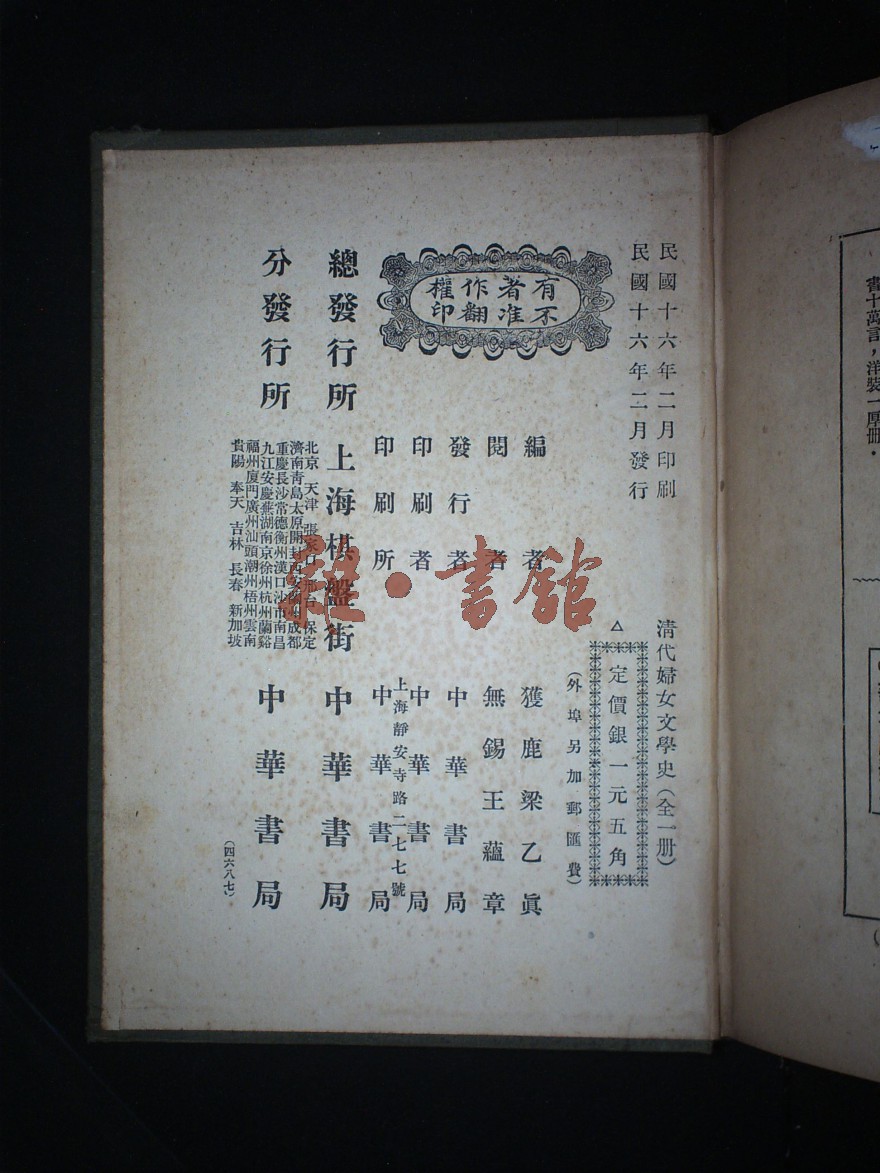 書十萬言，洋裝一厚册．
民國十六年二月印刷
民國十六年二月發行
清代婦女文學史（全一册）
△定價銀一元五角
（外埠另加郵匯費）
有著作權
不准翻印
編者 獲鹿梁乙眞
閱者 無錫王蘊章
發行者 中華書局
印刷者 中華書局
上海靜安寺路二七七號
印刷所 中華書局
總發行所 上海棋盤街 中華書局
分發行所
北京 天津 張家口 邢台 保定
濟南青島太原開封西安蘭州成都
重慶長沙常德衡州漢口沙市南昌
九江安慶蕪湖南京徐州杭州蘭谿
福州廈門廣州汕頭潮州梧州雲南
貴陽 奉天 吉林 長春 新加坡
中華書局
（四六八七）
書館